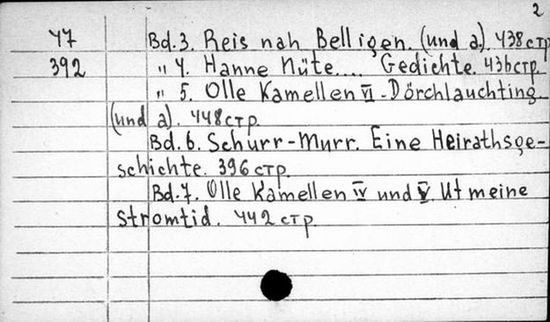 2
У7 Bd. 3. Reis nah Belligen. (und a.). 438 стр
392 " 4. Hanne Nüte.... Gedichte. 436 стр.
" 5. Olle Kamellen VI - Dörchlauchting
(und a). 448 стр.
Bd. 6. Schurr-Murr. Eine Heirathsge-
schichte. 396 стр.
Bd. 7. Olle Kamellen IV und V. Ut meine
Stromtid. 442 стр.